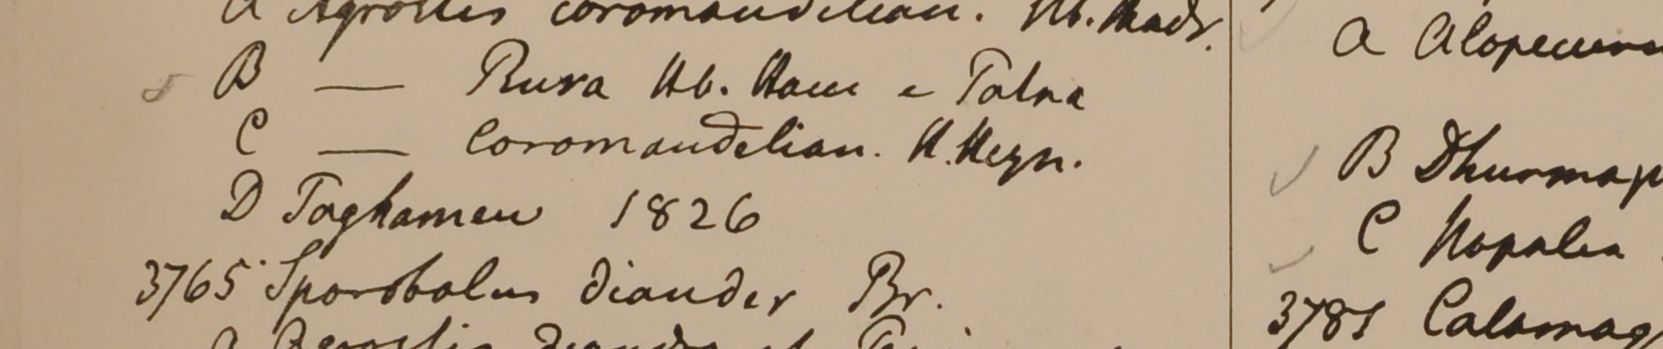 a Agrostis coromandelian. Hb. Madr.
B — Rura Hb. Ham e Patna
C — Coromandelian. H. Heyn.
D Taghamew 1826
3765 Sporobolus diander Br.
a Agrostis diandra et
a Alopecuru
B Dhurmap
C Napalia
3781 Calamag